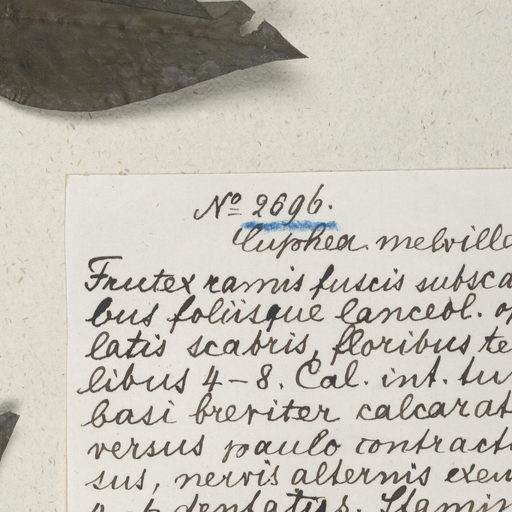 Nº 2696.
Cuphea melvilla
Frutex ramis fuscis subsca
bus foliisque lanceol. op
latis scabris, floribus te
libus 4-8. Cal. int. tu
basi breviter calcarat
versus paulo contract
sus, nervis alternis exeu
dentatus. Stamin